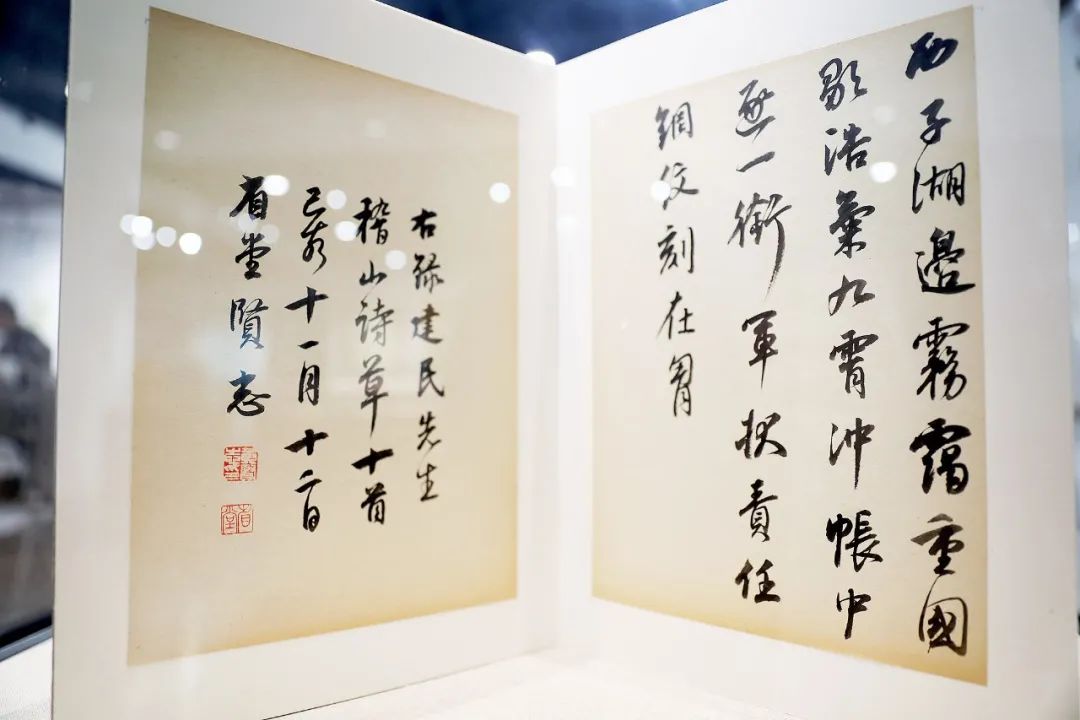 西子湖邊霧靄重國
歌浩氣九霄沖帳中
無一銜軍校責任
鋼紋刻在胷
右錄建民先生
稽山詩草十首
己亥十一月十二日
省堂賢志
省堂